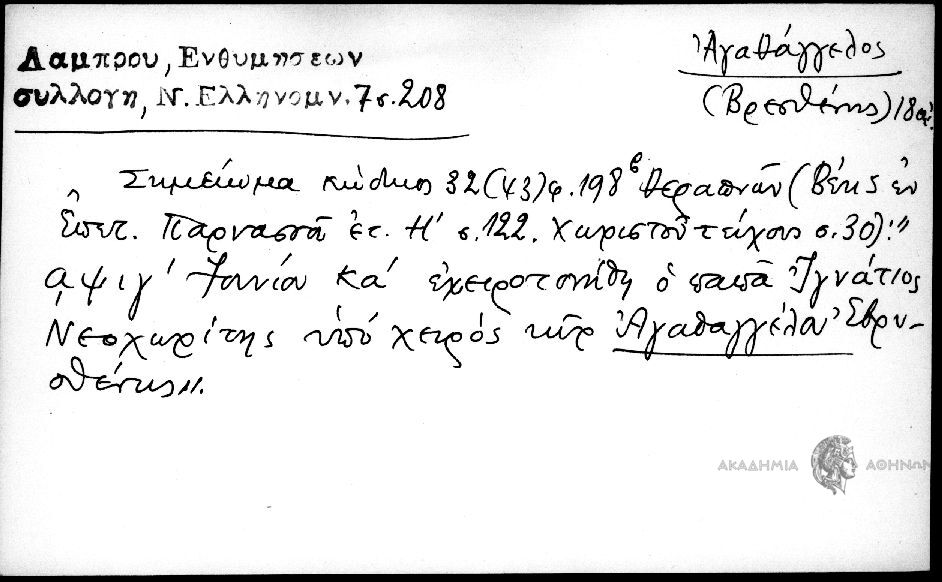 Λαμπρου, Ενθυμησεων
συλλογη, Ν. Ελληνομν. 7 σ. 208
Ἀγαθάγγελος
(Βρεσθένης) 18 αἰ.
Σημείωμα κώδικος 32 (43) φ. 198β Θεραπνῶν (Βέης ἐν
Ἐπετ. Παρνασσοῦ ἔτ. Η' σ. 122. Χωριστοῦ τεύχους σ. 30): "
αψιγ' Ἰουνίου κα' ἐχειροτονήθη ὁ παπᾶ Ἰγνάτιος
Νεοχωρίτης ὑπὸ χειρός κῦρ Ἀγαθαγγέλου Ἐβρυ-
σθένης".
ΑΚΑΔΗΜΙΑ ΑΘΗΝΩΝ